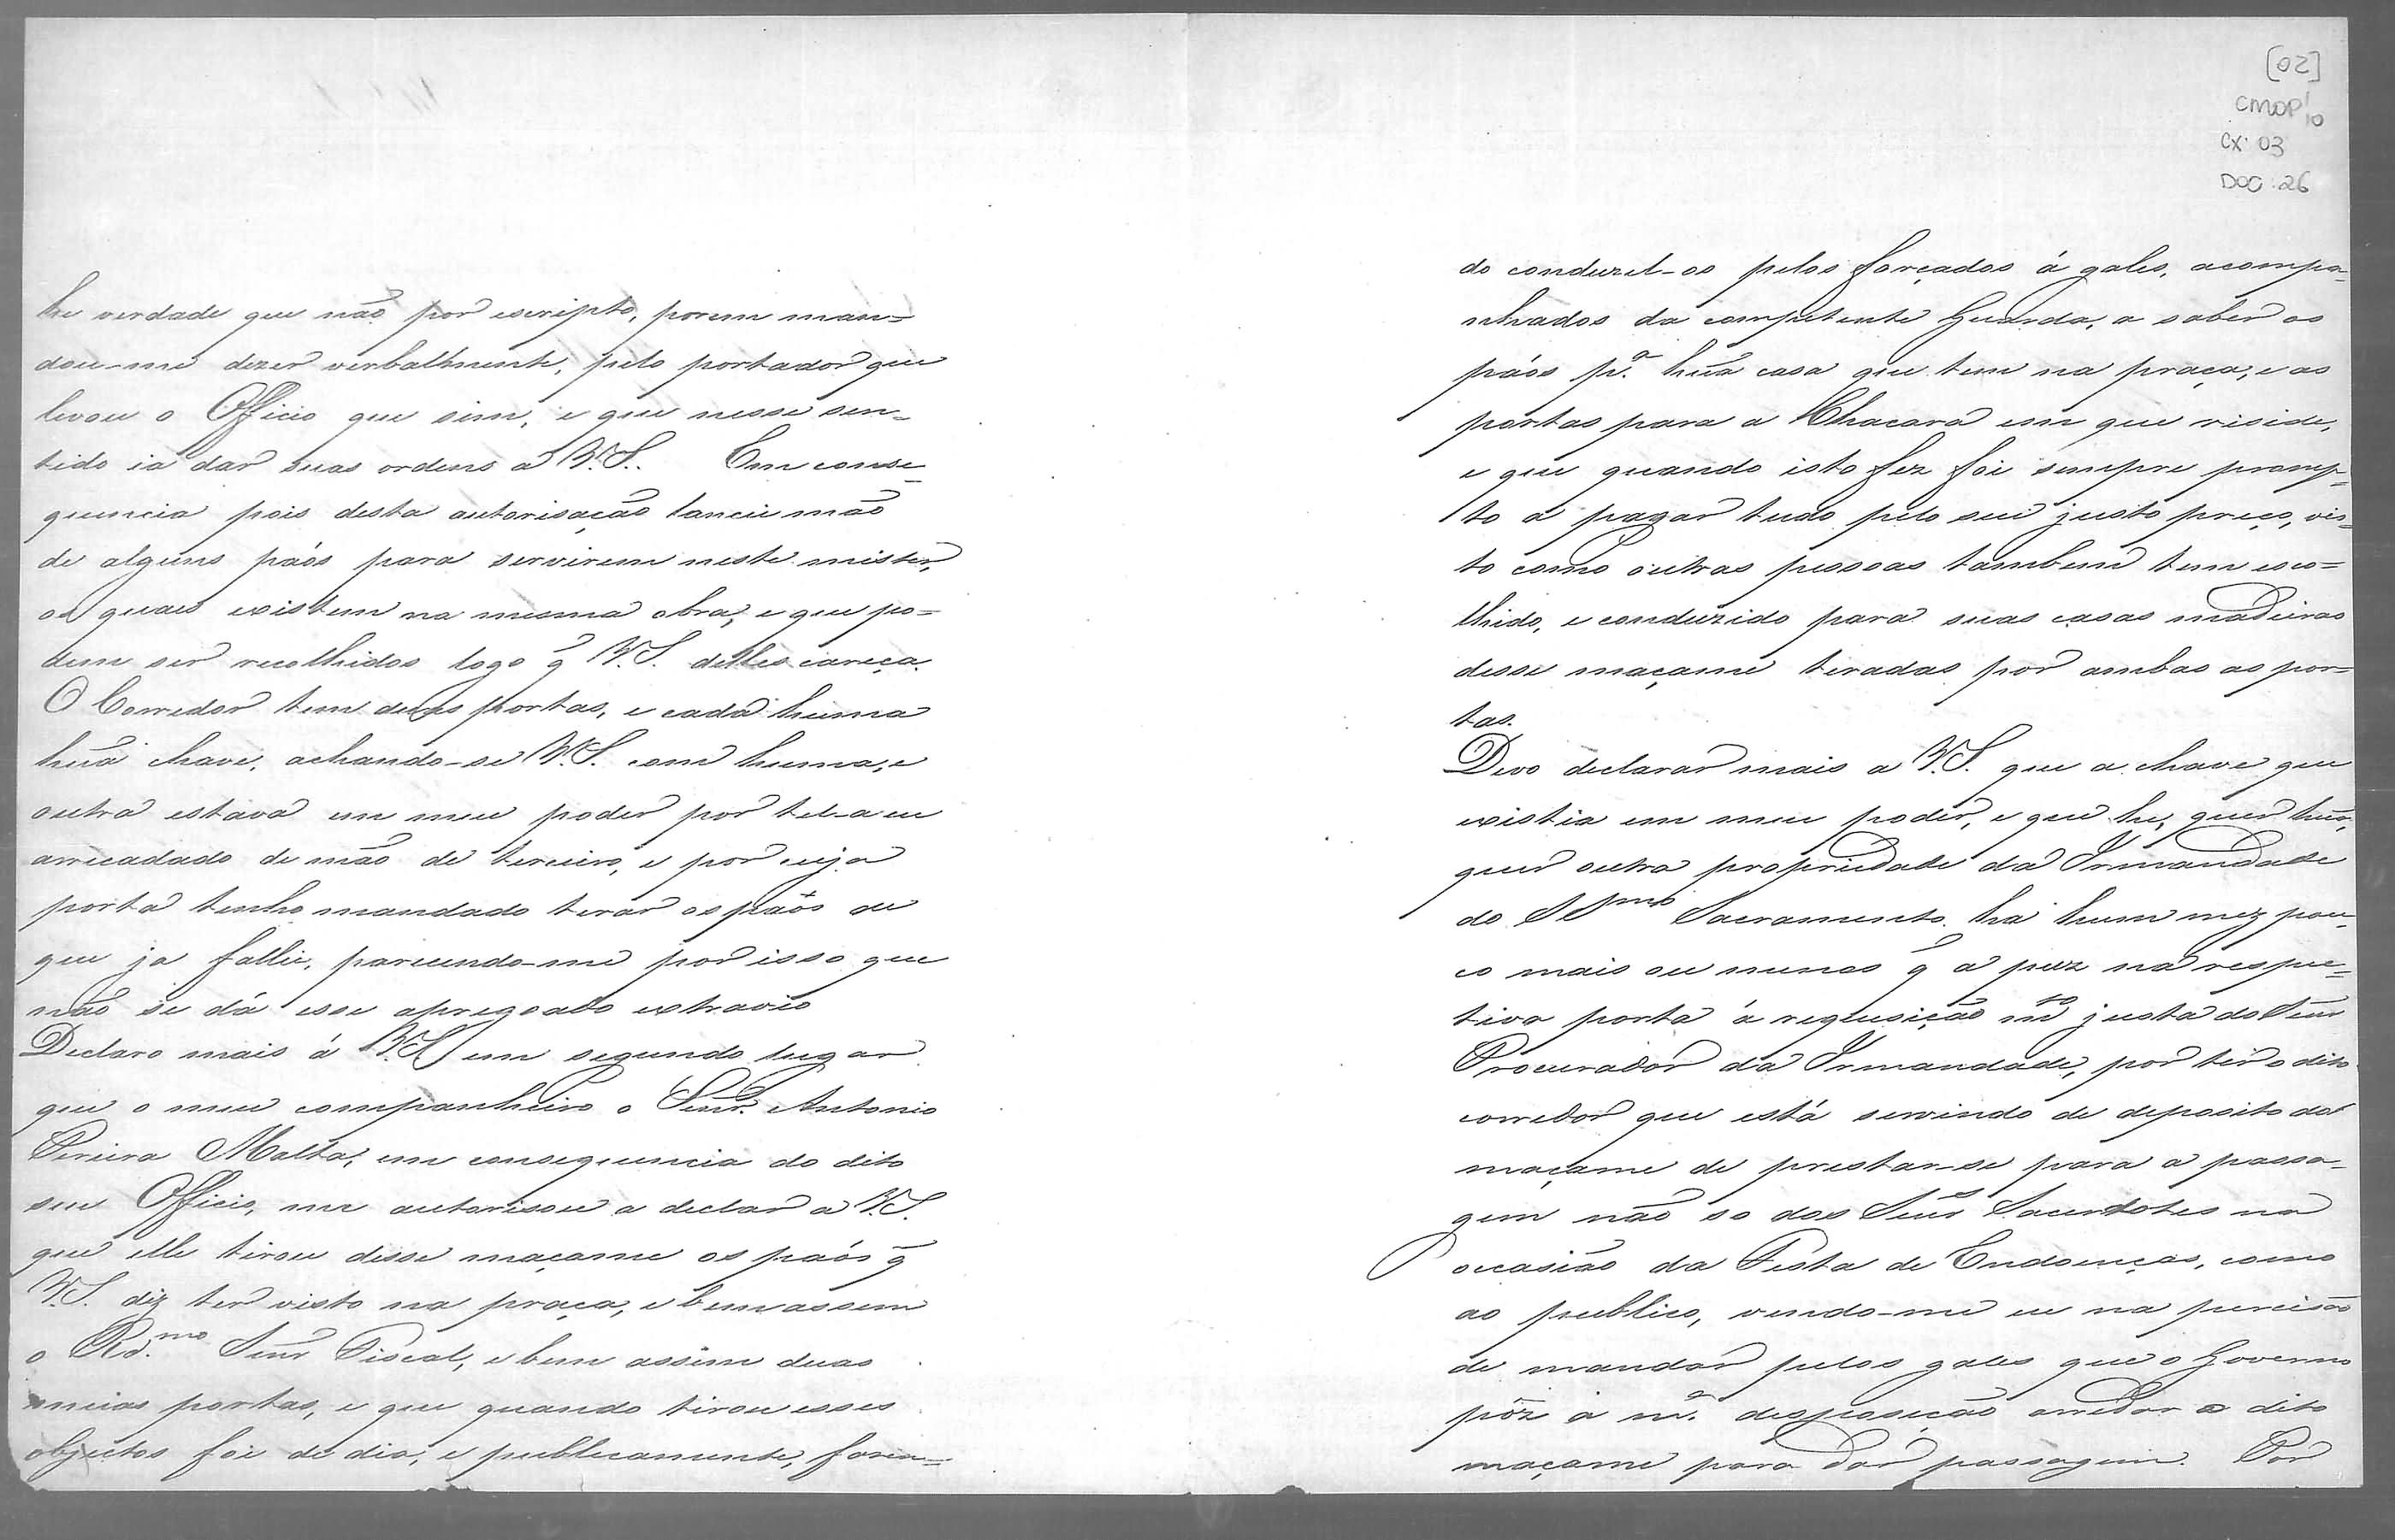 he verdade que não por escripto, porem man=
dou-me dizer verbalmente, pelo portador que
levou o Officio que sim, e que nesse sen=
tido ia dar suas ordens a V.S. Em conse=
quencia pois desta autorisação lancei mão
de alguns páos para servirem neste mister,
os quaes existem na mesma obra, e que po=
dem ser recolhidos logo q̃ V.S. delles careça.
O Corredor tem duas portas, e cada huma
hũa chave, achando-se V.S. com huma, e
outra estava em meu poder por tel-a eu
arrecadado de mão de terceiro, e por cuja
porta tenho mandado tirar os páos de
que ja fallei, parecendo-me por isso que
não se dá esse apregoado extravio
Declaro mais á V.S. em segundo lugar
que o meu companheiro o Senr. Antonio
Pereira Malta, em consequencia do dito
seu Officio, me autorisou a declar a V.S.
que elle tirou desse maçame os paós q̃
V.S. diz ter visto na praça, e bem assim
o Rd.mo Senr Fiscal, e bem assim duas
meias portas, e que quando tirou esses
objectos foi de dia, e publicamente, fasen=
[02]
CMOP 1/10
CX: 03
DOC: 26
do conduzil-os pelos forçados á galés, acompa=
nhados da competente Guarda, a saber os
páos pª. hũa casa que tem na praça, e as
portas para a Chacara em que reside,
e que quando isto fez foi sempre promp=
to a pagar tudo pelo seu justo preço, vis=
to como outras pessoas tambem tem esco=
lhido, e conduzido para suas casas madeiras
desse maçame tiradas por ambas as por=
tas.
Devo declarar mais a V.S. que a chave que
existia em meu poder, e que he, quer hũa,
quer outra propriedade da Irmandade
do SSmo Sacramento ha hum mez pou=
co mais ou menos q̃ a puz na respec=
tiva porta á requisição mto justa do Senr
Procurador da Irmandade, por ter o dito
corredor que está servindo de deposito do
maçame de prestar-se para a passa=
gem não so dos Senres Sacerdotes na
occasião da Festa de Endoenças, como
ao publico, vendo-me eu na percisão
de mandar pelos galés que o Governo
pôz á mª. desposição arredar o dito
maçame para dar passagem. Por